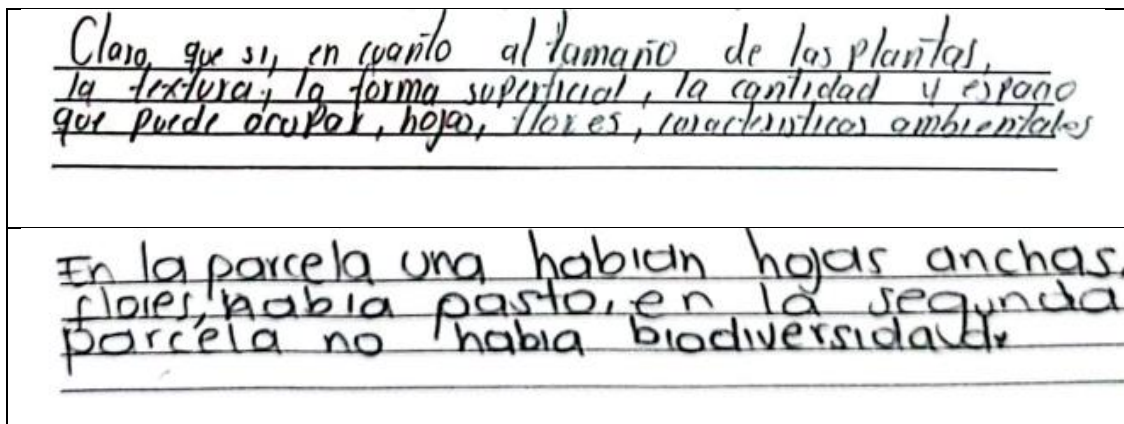 Claro, que si, en cuanto al tamaño de las plantas,
la textura, la forma superficial, la cantidad y espacio
que puede ocupar, hojas, flores, caracteristicas ambientales
En la parcela una habian hojas anchas,
flores, habia pasto, en la segunda
parcela no habia biodiversidad.